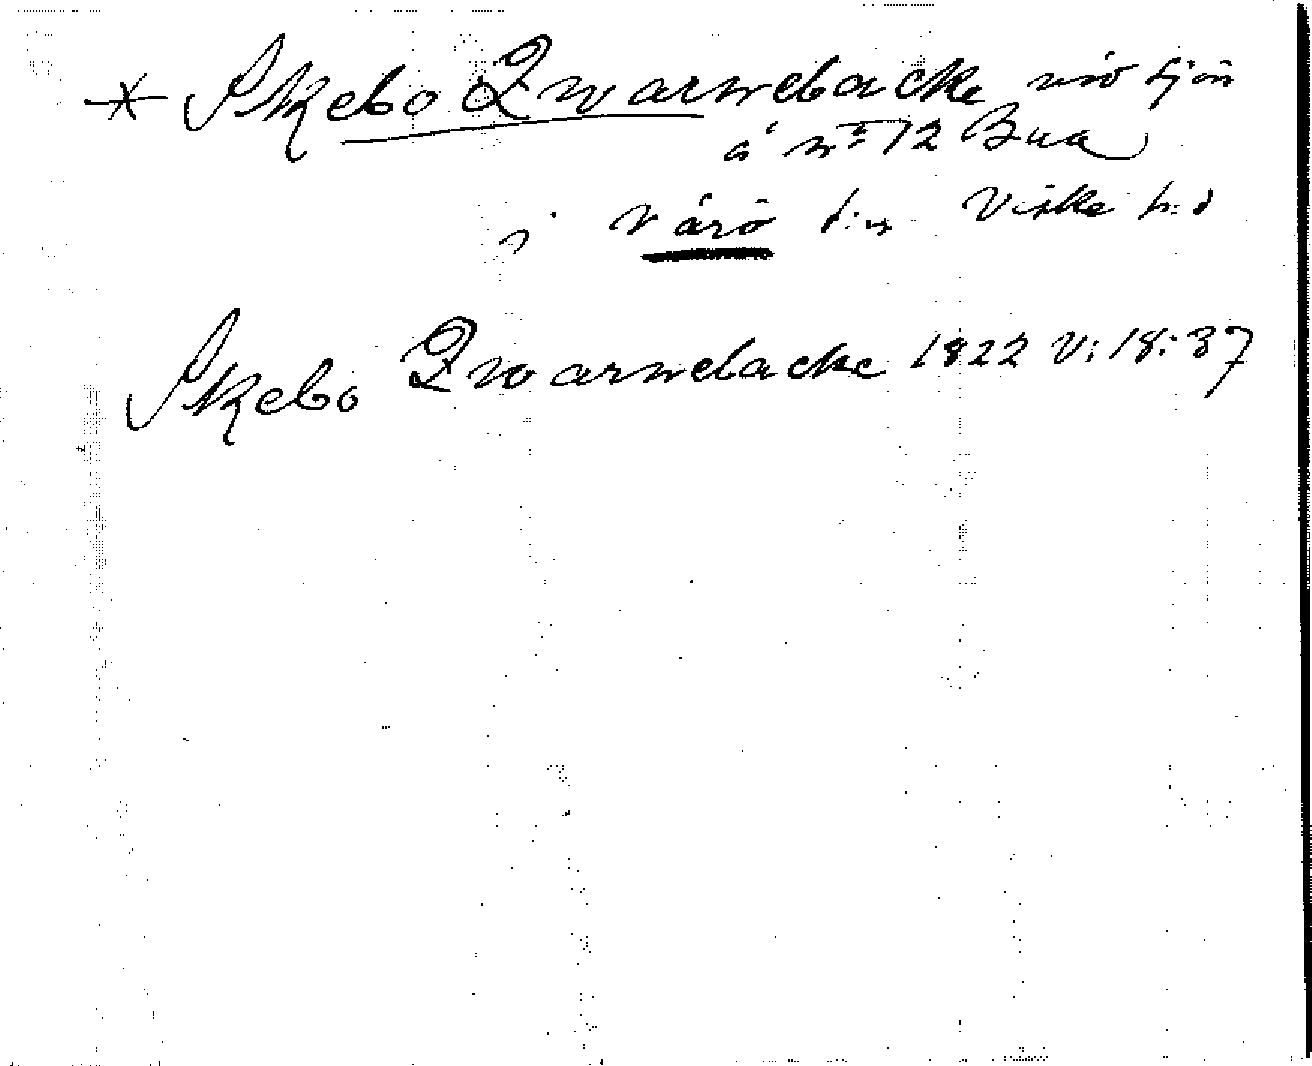 * Skebo Qwarnebacke vid sjön
å nº 12 Bua
i Värö s:n Viske h:d
Skebo Qwarnebacke 1822 V: 18: 37